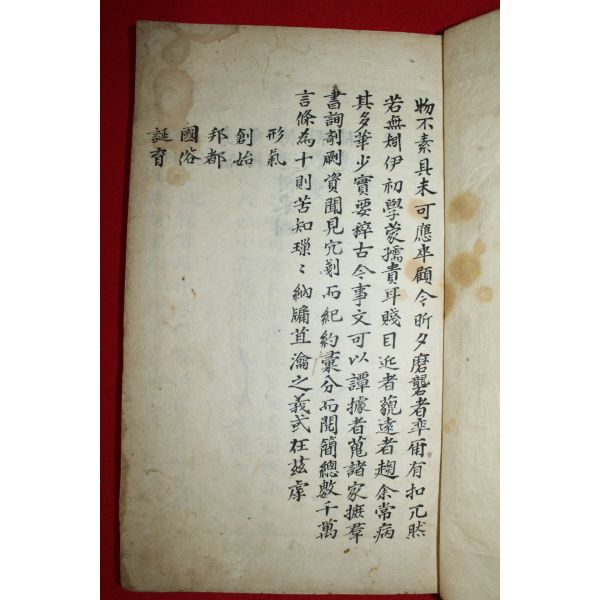 物不素具未可應卒顧今昕夕磨礱者率爾有扣兀然
若無矧伊初學蒙孺貴耳賤目近者藐遠者趨余常病
其多華少實要稡古今事文可以譚據者蒐諸家摭羣
書詢剞劂資聞見冗剗而紀約彙分而閱簡總數千萬
言條為十則苦知璅〻納牖苴瀹之義式在玆虖
形氣
創始
邦都
國俗
誕育